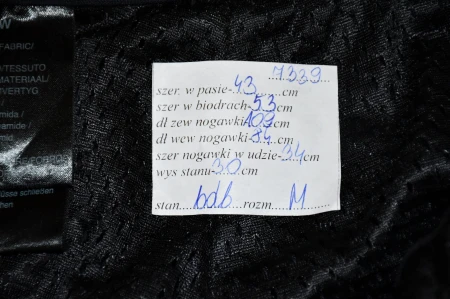 W
FABRIC/
/TESSUTO
MATERIAAL/
NVERTYG
mida /
amide /
üsse schließen
7339
szer. w pasie-43......cm
szer w biodrach-53cm
dł zew nogawki-109cm
dł wew nogawki-84..cm
szer nogawki w udzie-34cm
wys stanu-30cm
stan...bdb...rozm...M.......